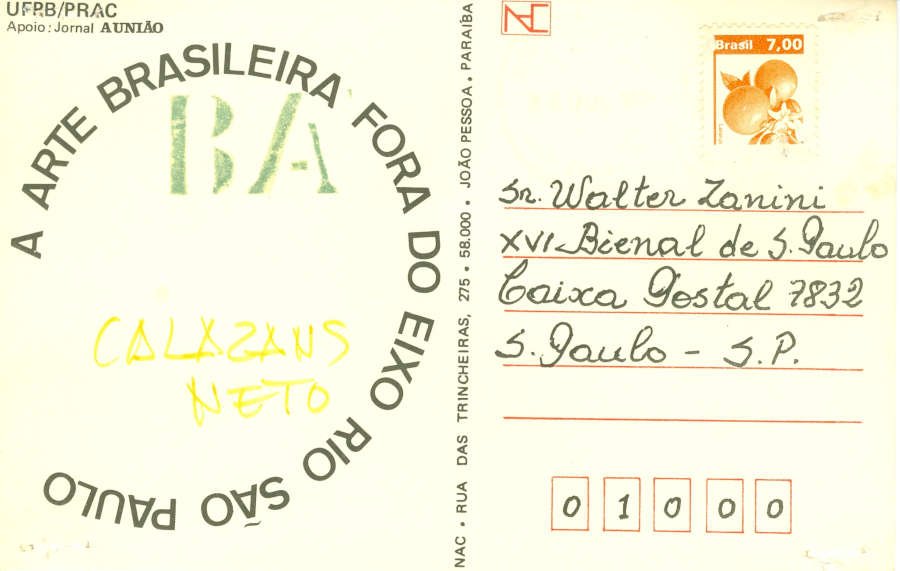 UFPB/PRAC
Apoio: Jornal A UNIÃO
A ARTE BRASILEIRA FORA DO EIXO RIO SÃO PAULO
BA
CALAZANS
NETO
NAC • RUA DAS TRINCHEIRAS, 275 • 58.000 • JOÃO PESSOA • PARAÍBA
NAC
Brasil 7,00
Sr. Walter Zanini
XVI Bienal de S. Paulo
Caixa Postal 7832
S. Paulo - S.P.
0 1 0 0 0